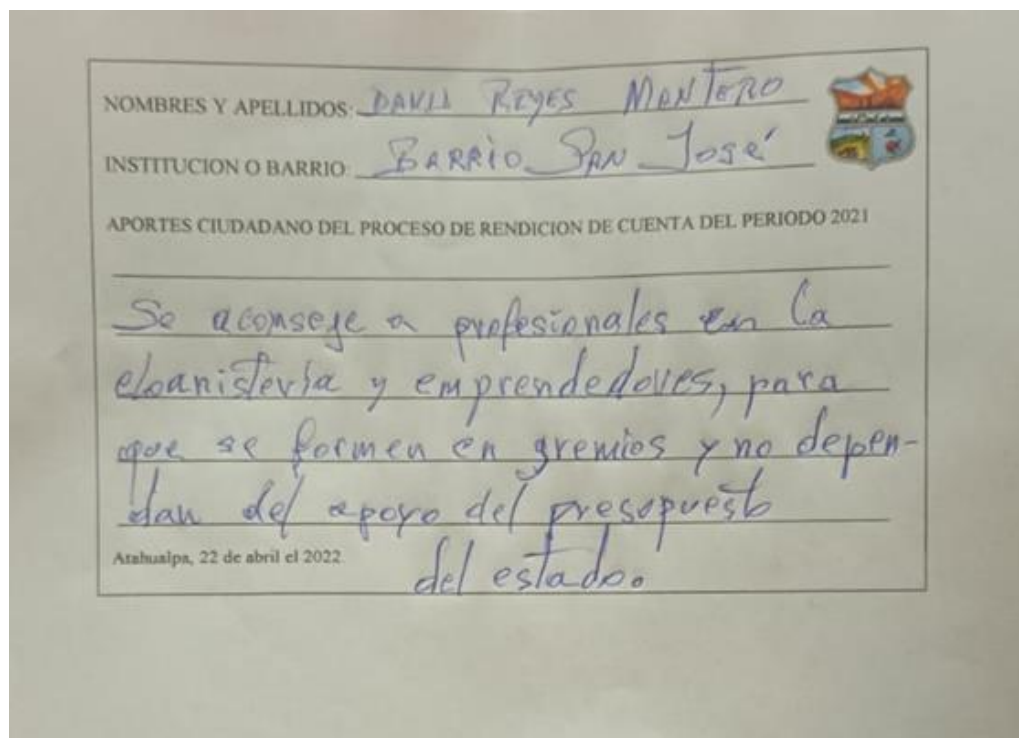 NOMBRES Y APELLIDOS: DAVID REYES MANTERO
INSTITUCION O BARRIO: BARRIO SAN José
APORTES CIUDADANO DEL PROCESO DE RENDICION DE CUENTA DEL PERIODO 2021
Se aconseje a profesionales en la
ebanistería y emprendedores, para
que se formen en gremios y no depen-
dan del apoyo del presopuesto
Atahualpa, 22 de abril el 2022
del estado.